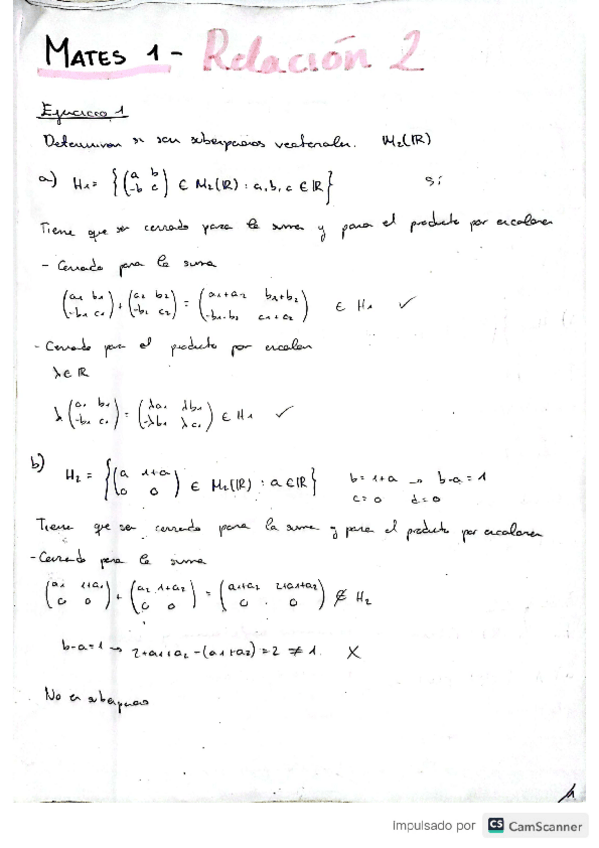 MATES 1 - Relación 2
Ejercicio 1
Determinar si son subespacios vectoriales. M₂(ℝ)
a) H₁ = {(a b; -b c) ∈ M₂(ℝ) : a, b, c ∈ ℝ} Sí
Tiene que ser cerrado para la suma y para el producto por escalares
- Cerrado para la suma
(a₁ b₁; -b₁ c₁) + (a₂ b₂; -b₂ c₂) = (a₁+a₂ b₁+b₂; -b₁-b₂ c₁+c₂) ∈ H₁ ✓
- Cerrado para el producto por escalar
λ ∈ ℝ
λ (a₁ b₁; -b₁ c₁) = (λa₁ λb₁; -λb₁ λc₁) ∈ H₁ ✓
b) H₂ = {(a 1+a; 0 0) ∈ M₂(ℝ) : a ∈ ℝ} b = 1+a → b-a = 1
c = 0 d = 0
Tiene que ser cerrado para la suma y para el producto por escalares
- Cerrado para la suma
(a₁ 1+a₁; 0 0) + (a₂ 1+a₂; 0 0) = (a₁+a₂ 2+a₁+a₂; 0 0) ∉ H₂
b-a=1 → 2+a₁+a₂-(a₁+a₂) = 2 ≠ 1. X
No es subespacio
Impulsado por CS CamScanner